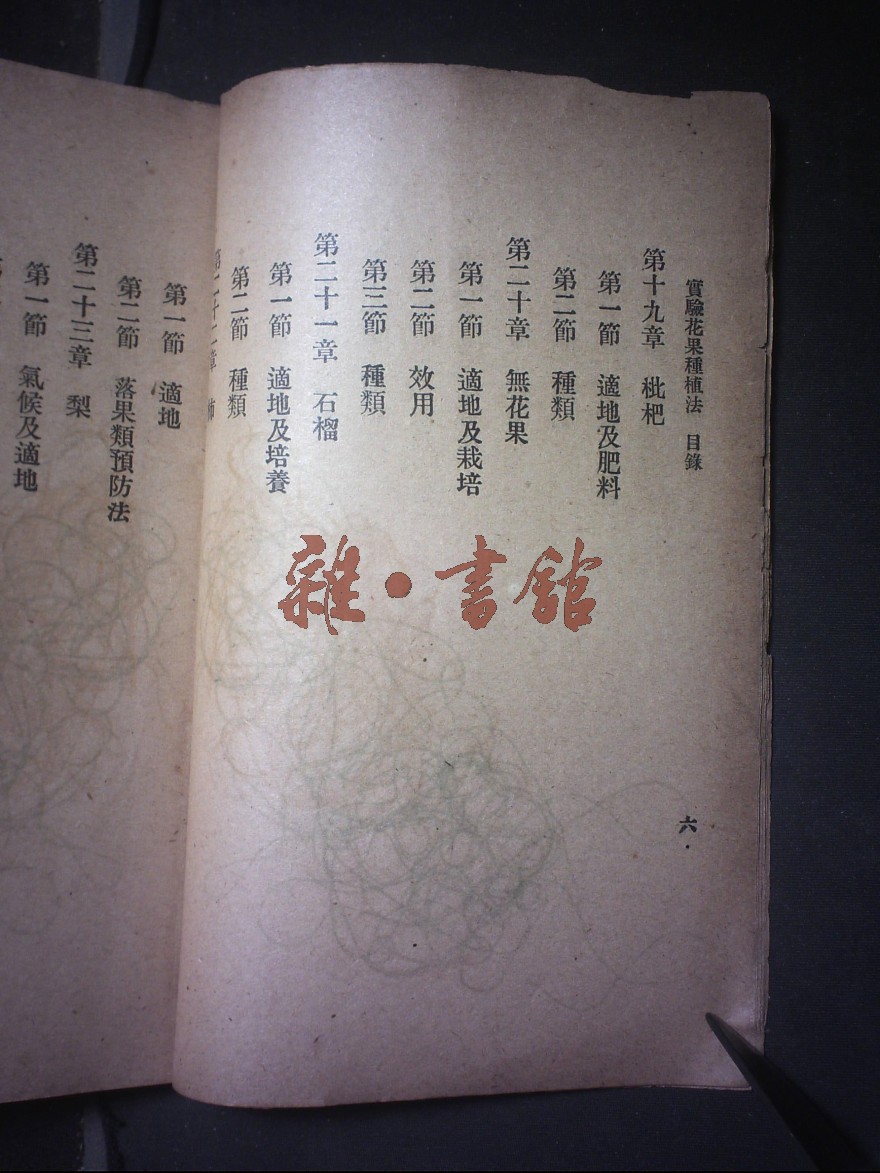 實驗花果種植法 目錄
第十九章 枇杷
第一節 適地及肥料
第二節 種類
第二十章 無花果
第一節 適地及栽培
第二節 效用
第三節 種類
第二十一章 石榴
第一節 適地及培養
第二節 種類
第二十二章
六
第一節 適地
第二節 落果類預防法
第二十三章 梨
第一節 氣候及適地
雜·書館